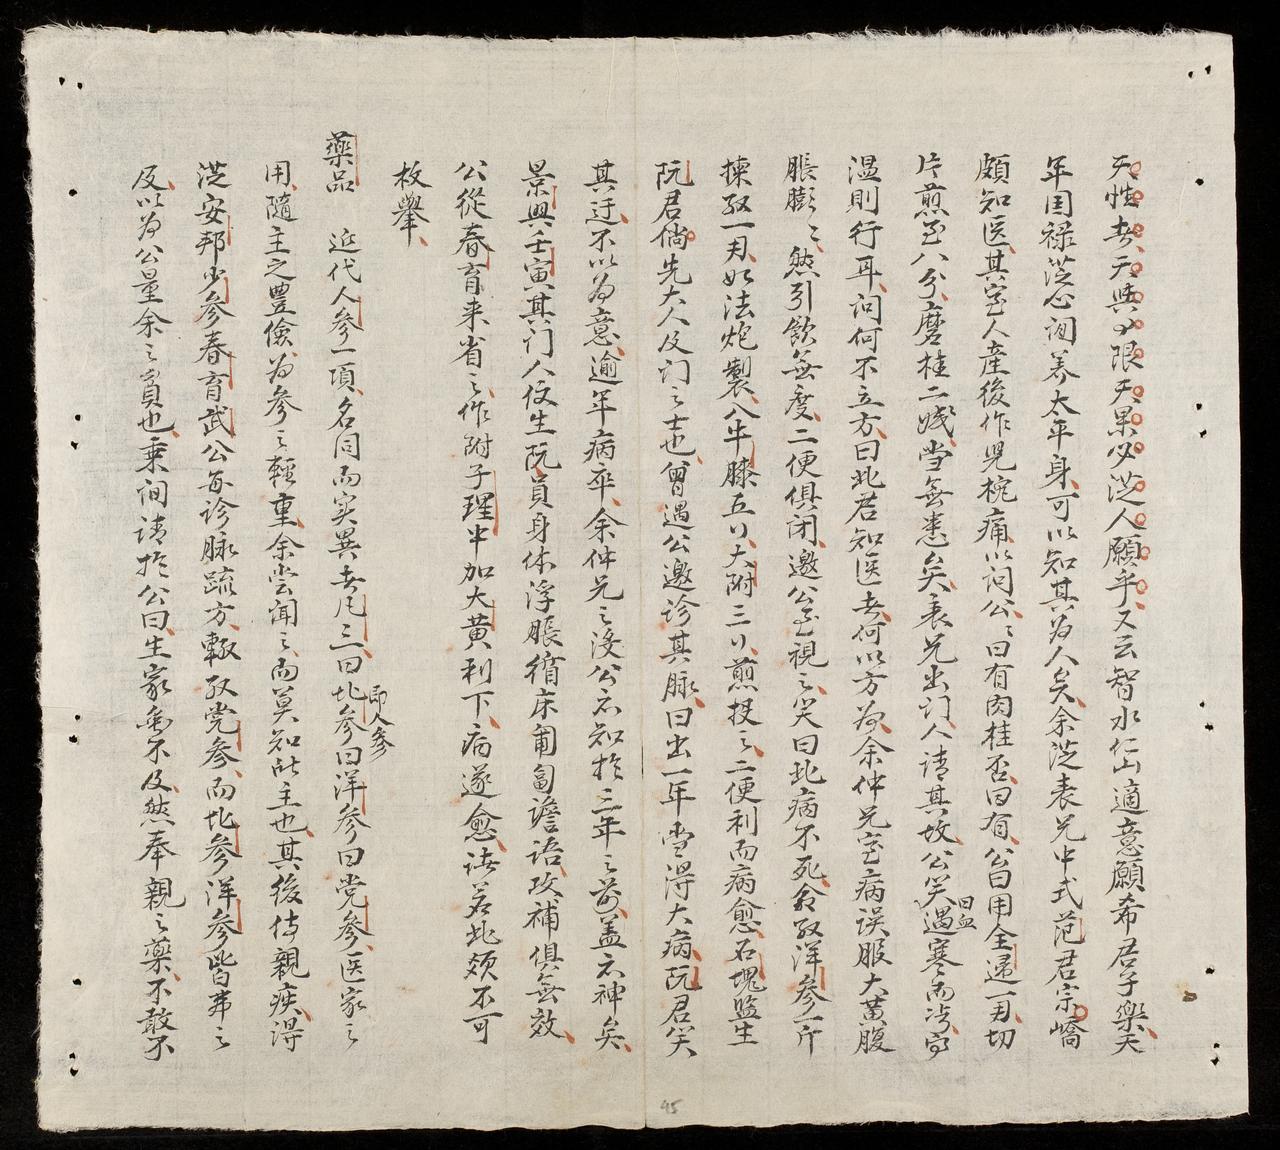 天性者天與以限天果必從人願乎又云智水仁山適意願希君子樂天
年国禄從心調養太平身可以知其为人矣余從表兄中式范君宗嶠
頗知医其室人產後作児椀痛以问公〻曰有肉桂否曰有公曰用全归一両切
片煎至八分磨桂二戔当無恙矣表兄出门人请其故公笑曰血遇寒而凝
温則行耳问何不立方曰此君知医者何以方为余仲兄室病误服大黄腹
脹膨〻然引飲無度二便俱闭邀公至視之笑曰此病不死令取洋參一斤
揀取一両如法炮製入牛膝五戔大附三戔煎投之二便利而病愈石塊監生
阮君倘先大人及门之士也曾遇公邀诊其脉曰出一年當得大病阮君笑
其迂不以为意逾年病卒余仲兄之没公亦知於三年之前盖亦神矣
景興壬寅其门人佞生阮員身体浮脹循床匍匐譫语攻補俱無效
公從春育来省之作附子理中加大黄利下病遂愈诸若此類不可
枚舉
藥品 近代人參一項名同而实異者凡三曰北參即人參曰洋參曰党參医家之
用隨主之豊儉为參之輕重余尝闻之而莫知所主也其後侍親疾得
從安邦少參春育武公每诊脉疏方輙取党參而北參洋參皆弗之
及以为公量余之貧也乗间请於公曰生家虽不及然奉親之藥不敢不